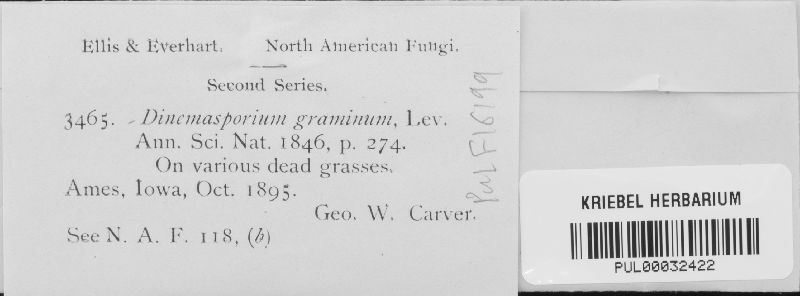 Ellis & Everhart. North American Fungi.
Second Series.
3465. Dinemasporium graminum, Lev.
Ann. Sci. Nat. 1846, p. 274.
On various dead grasses.
Ames, Iowa, Oct. 1895.
Geo. W. Carver.
See N. A. F. 118, (b)
PUL F16199
KRIEBEL HERBARIUM
PUL00032422